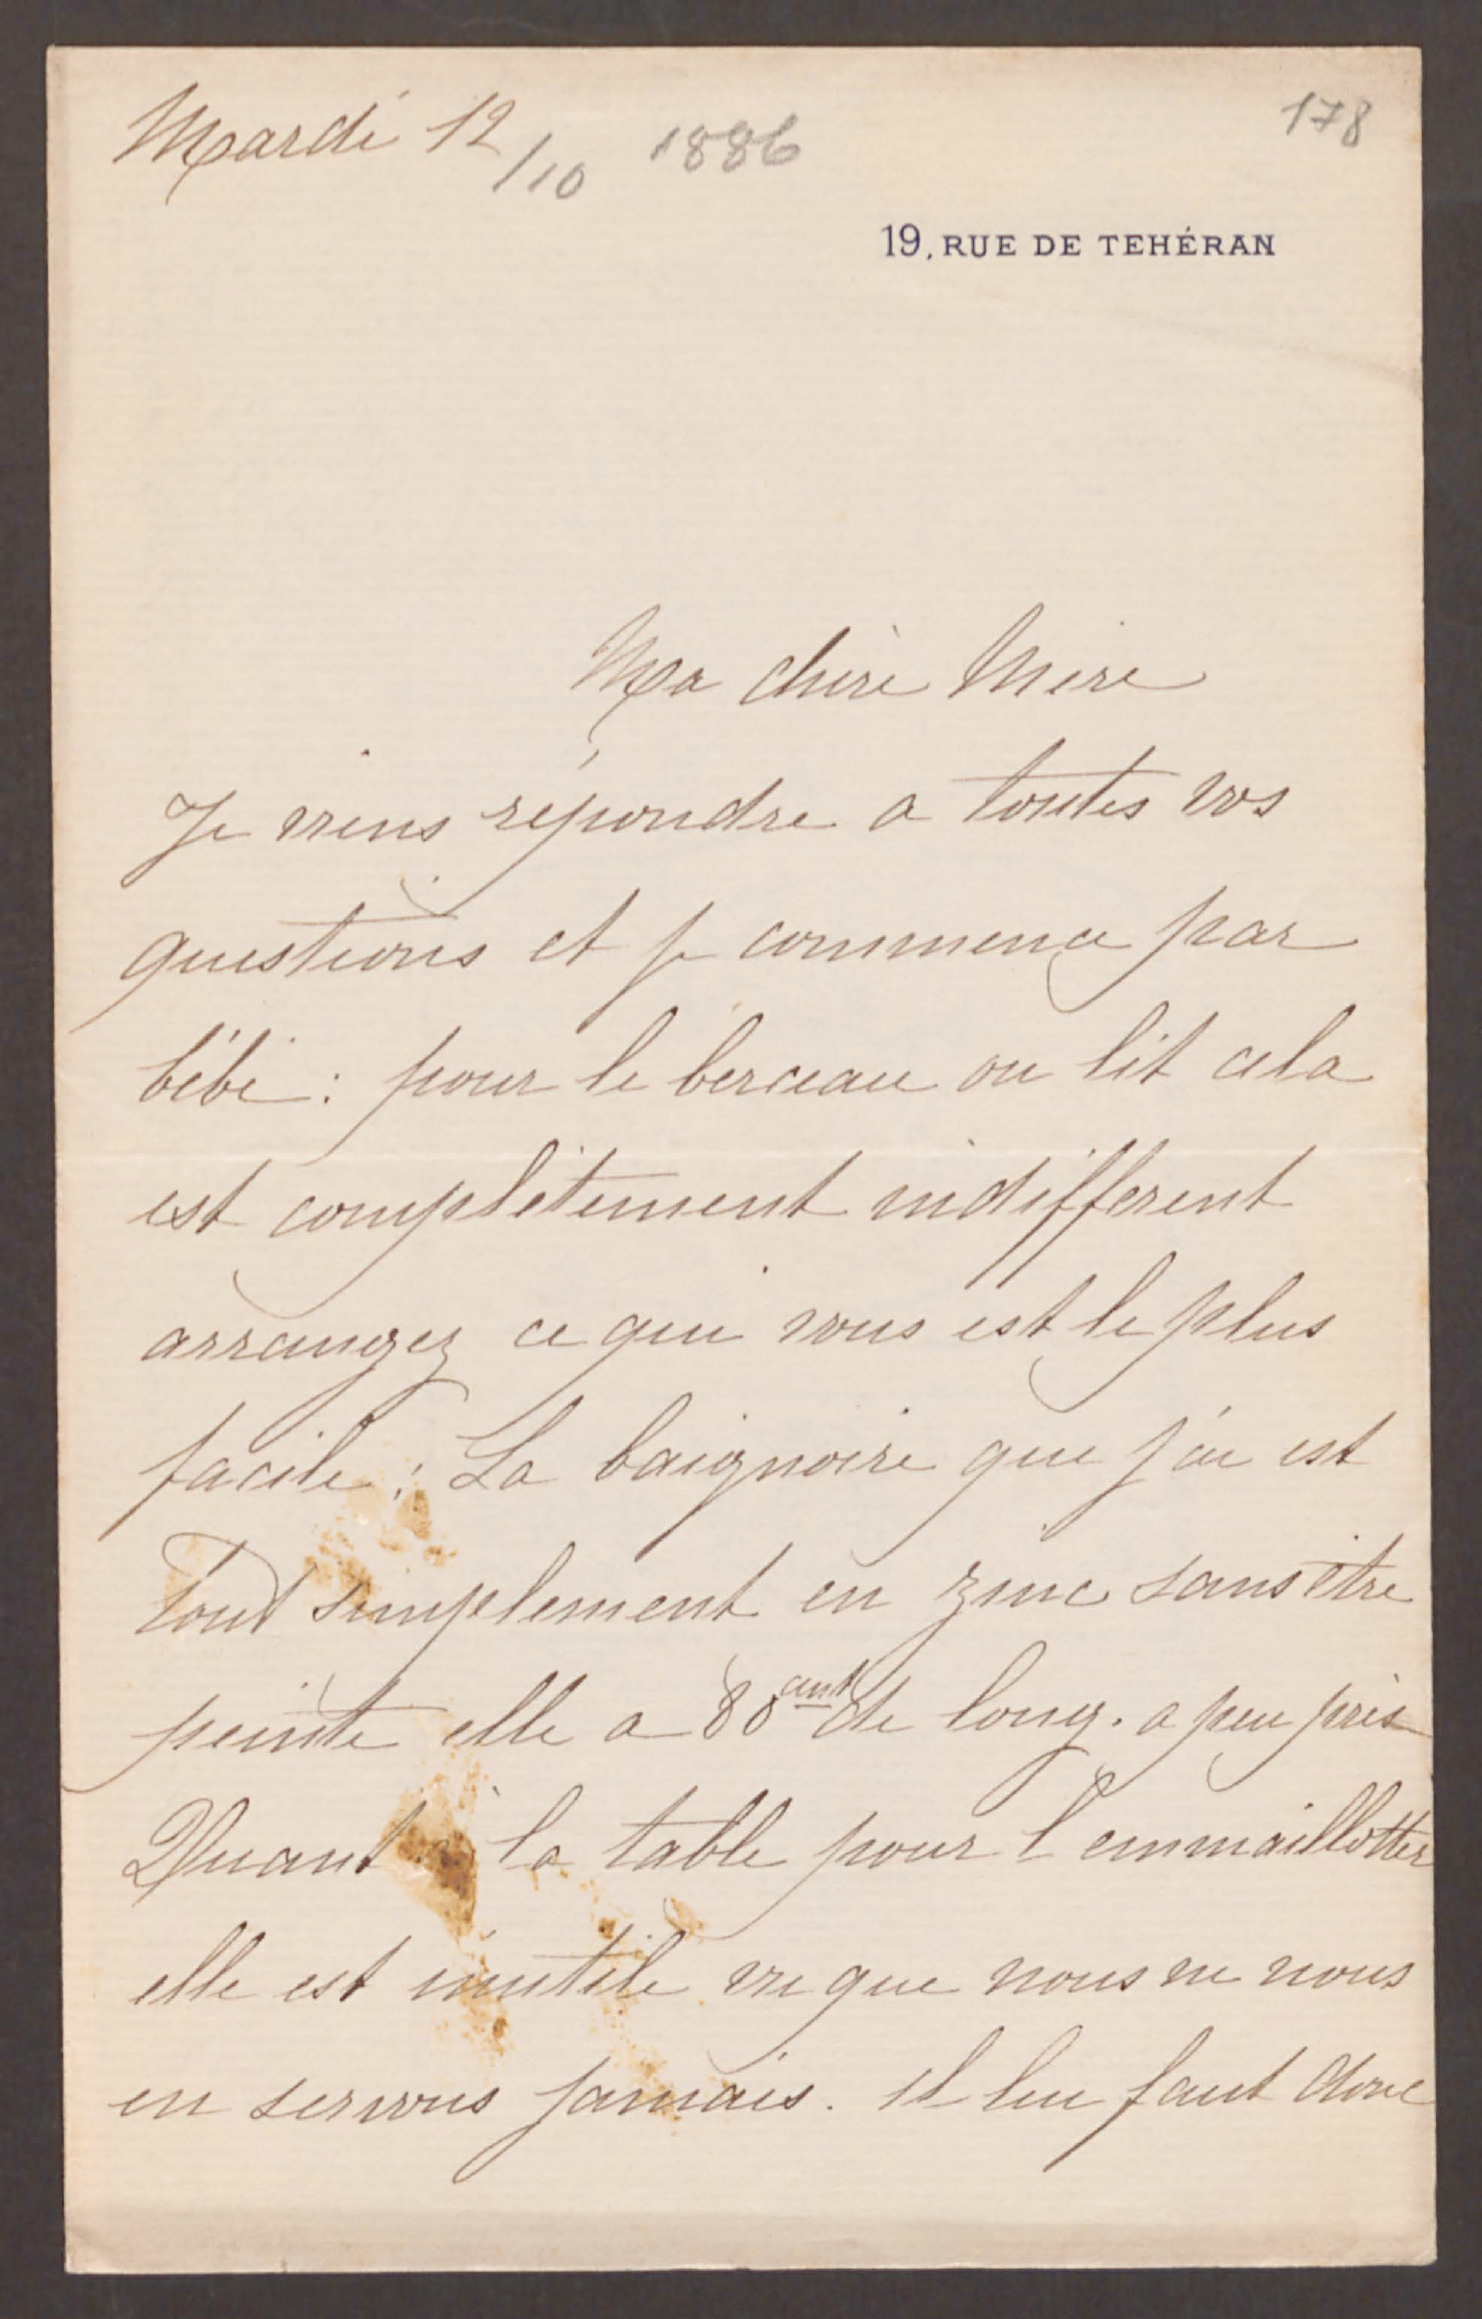 Mardi 12/10 1886
178
19, RUE DE TEHÉRAN
Ma chère Mère
Je viens répondre a toutes vos
questions et je commence par
bébé : pour le berceau ou lit cela
est complètement indifferent
arrangez ce qui vous est le plus
facile ; La baignoire que j'ai est
tout simplement en zinc sans être
peinte elle a 80 cent de long. a peu près
Quant à la table pour l'emmaillotter
elle est inutile vu que nous ne nous
en servons jamais. il lui faut donc